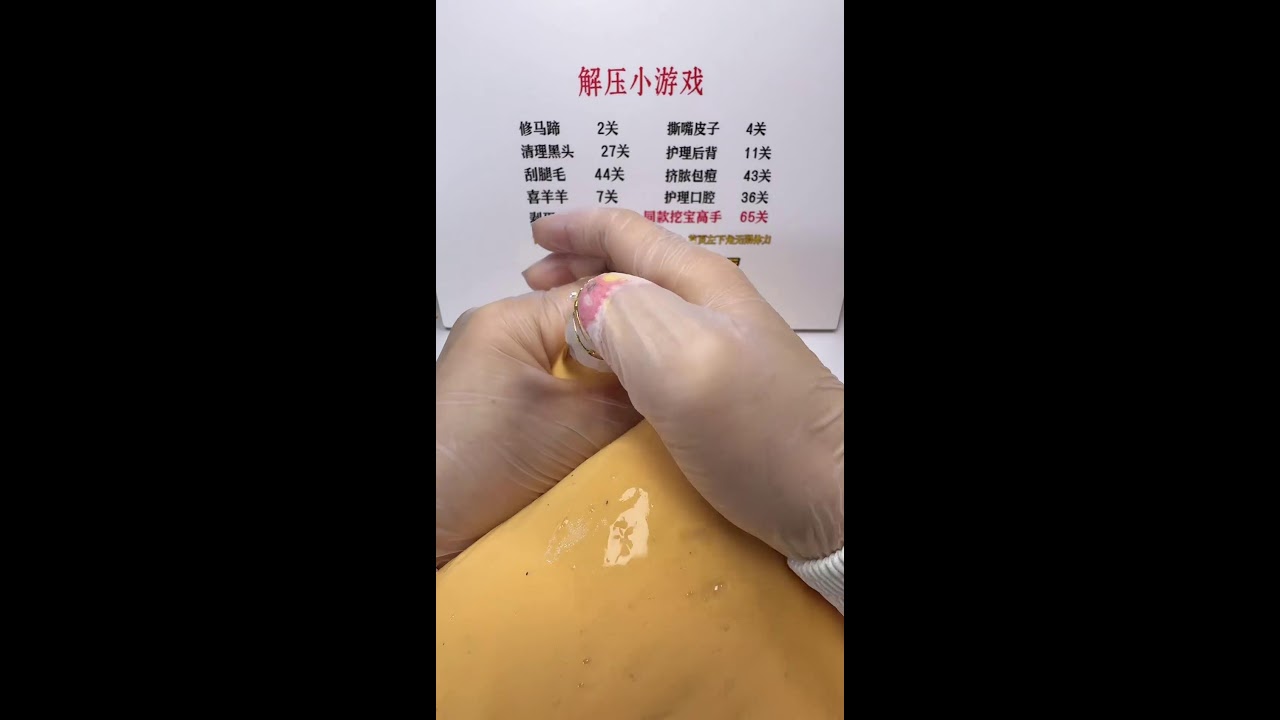 解压小游戏
修马蹄 2关 撕嘴皮子 4关
清理黑头 27关 护理后背 11关
刮腿毛 44关 挤脓包痘 43关
喜羊羊 7关 护理口腔 36关
同款挖宝高手 65关